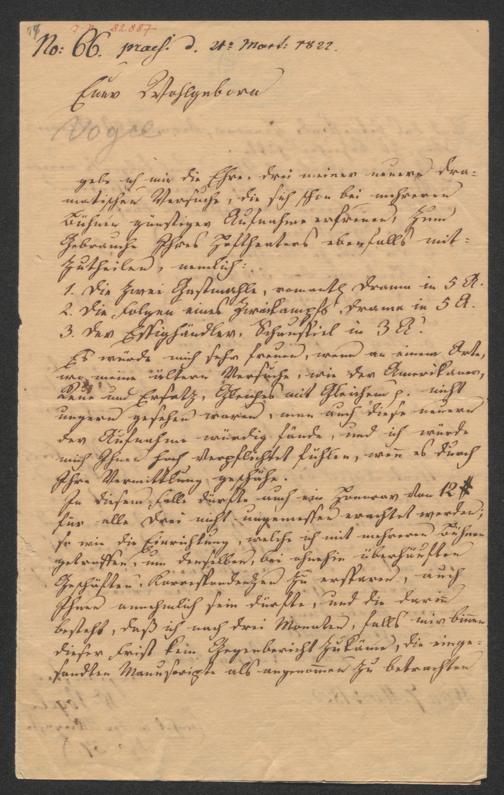 82887
No: 66. praes. d. 21t Mart: 1822.
Euer Wohlgeborn
Vogel
gebe ich mir die Ehre, drei meiner neuern dra-
matischen Versuche, die sich schon bei mehreren
Bühnen günstiger Aufnahme erfreuen, zum
Gebrauche Ihres Hoftheaters ebenfalls mit-
zutheilen, nemlich:
1. Die zwei Gastmahle, romant. Drama in 5 A.
2. Die Folgen eines Zweikampfs, Drama in 5 A.
3. Der Essighändler, Schauspiel in 3 A.
Es würde mich sehr freuen, wenn an einem Orte,
wo meine ältern Versuche, wie der Amerikaner,
Reue und Ersatz, Gleiches mit Gleichem p. nicht
ungern gesehen waren, man auch diese neuern
der Aufnahme würdig fände, und ich würde
mich Ihnen hoch verpflichtet fühlen, wenn es durch
Ihre Vermittlung geschähe.
In diesem Falle dürfte auch ein Honorar von 12 #
für alle drei nicht unangemessen erachtet werden,
so wie die Einrichtung, welche ich mit mehreren Bühnen
getroffen, um denselben, bei ohnehin überhäuften
Geschäften, Korrespondenzen zu ersparen, auch
Ihnen annehmlich sein dürfte, und die darin
besteht, daß ich nach drei Monaten, falls mir binnen
dieser Frist kein Gegenbericht zukäme, die einge-
sandten Manuscripte als angenommen zu betrachten